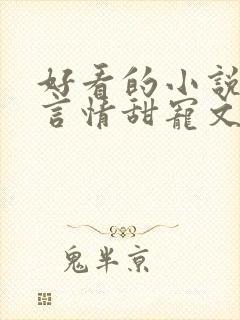 好看的小說
言情甜寵文
鬼半京